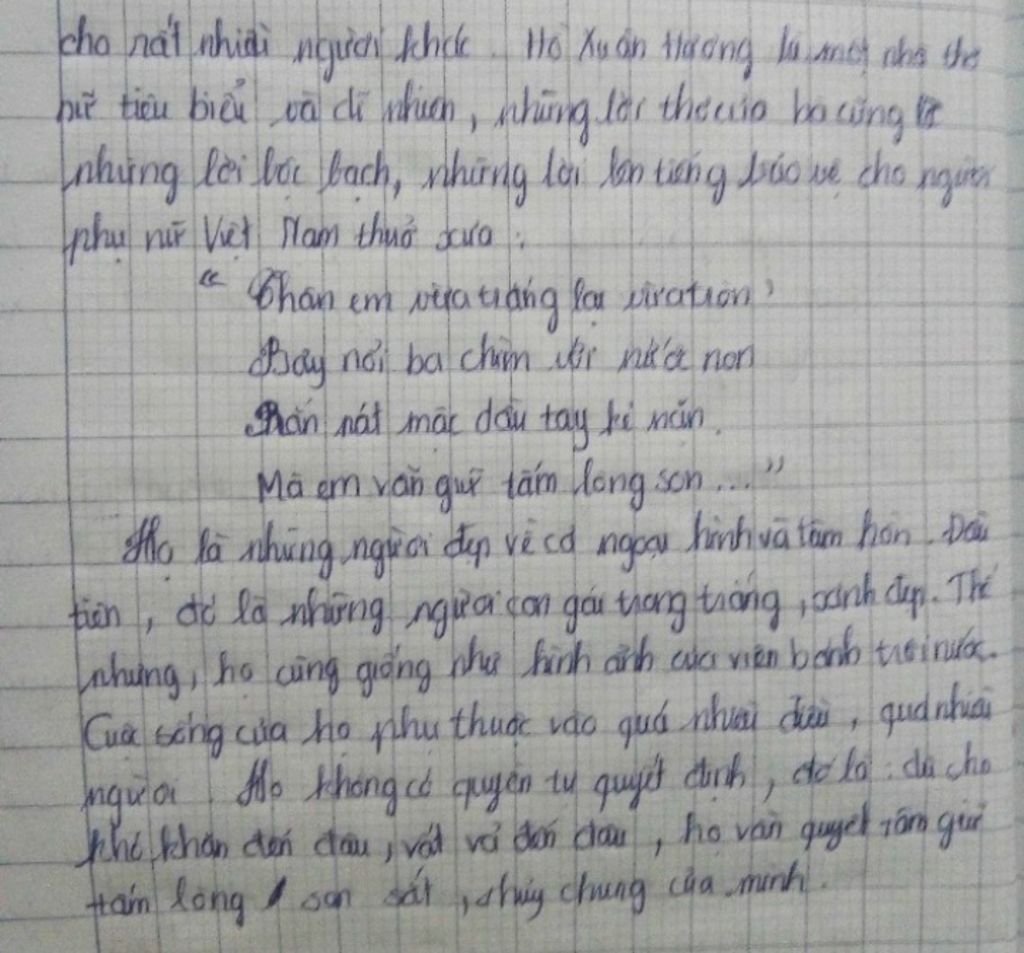 cho rất nhiều người khác. Hồ Xuân Hương là một nhà thơ
nữ tiêu biểu và dĩ nhiên, những lời thơ của bà cũng là
những lời bộc bạch, những lời lên tiếng bảo vệ cho người
phụ nữ Việt Nam thuở xưa :
“ Thân em vừa trắng lại vừa tròn
Bảy nổi ba chìm với nước non
Rắn nát mặc dầu tay kẻ nặn.
Mà em vẫn giữ tấm lòng son...”
Họ là những người đẹp về cả ngoại hình và tâm hồn. Đầu
tiên, đó là những người con gái trong trắng, xinh đẹp. Thế
nhưng, họ cũng giống như hình ảnh của viên bánh trôi nước.
Cuộc sống của họ phụ thuộc vào quá nhiều điều, quá nhiều
người. Họ không có quyền tự quyết định, đó là : dù cho
khó khăn đến đâu, vất vả đến đâu, họ vẫn quyết tâm giữ
tấm lòng son sắt, thủy chung của mình.